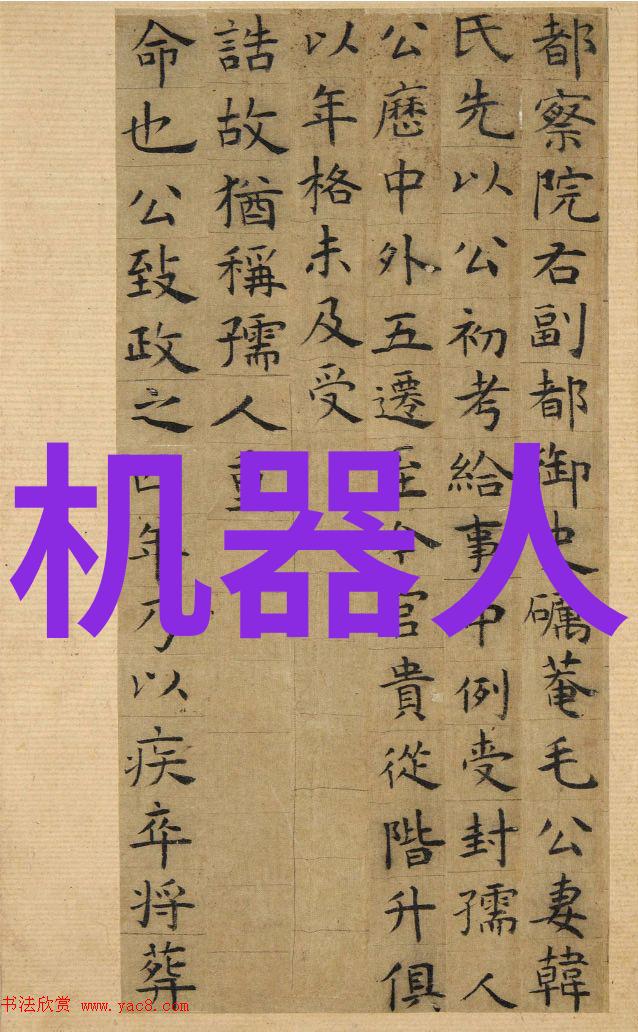 都察院右副都御史礪菴毛公妻韓
氏先以公初考給事中例受封孺人
公歷中外五遷至今官貴從階升俱
以年格未及受
誥故猶稱孺人重
命也公致政之四年乃以疾卒將葬
机器人
书法欣赏 www.yac8.com